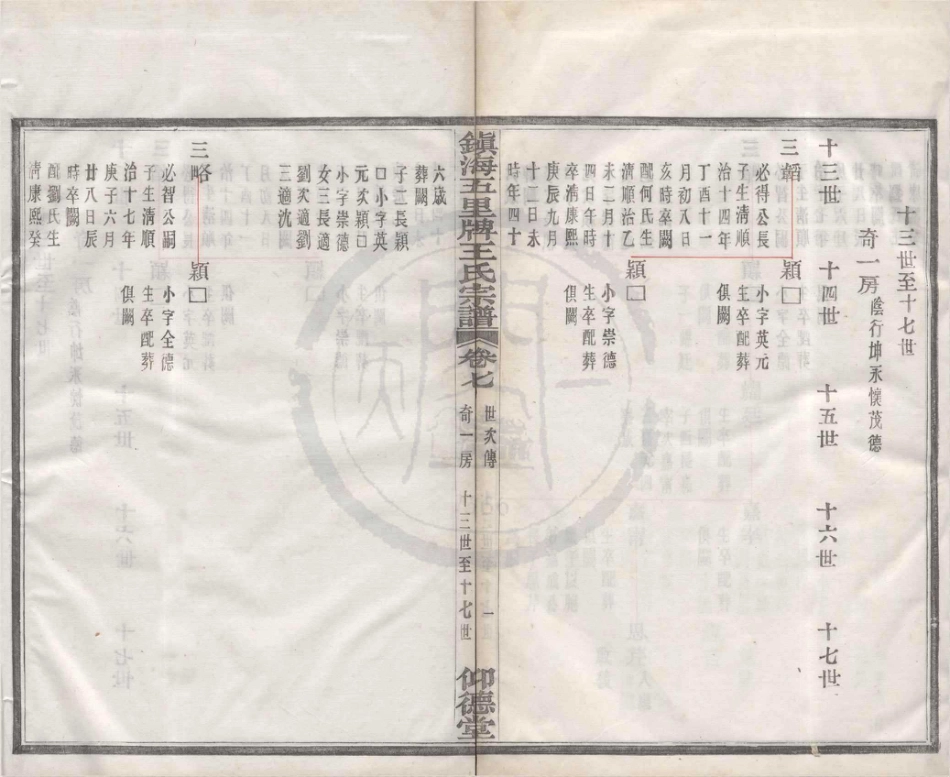 十三世至十七世
奇一房 陰行坤永懷茂德
十三世 十四世 十五世 十六世 十七世
三韜
必得公長
子生清順
治十四年
丁酉十一
月初八日
亥時卒闕
配何氏生
清順治乙
未二月十
四日午時
卒清康熙
庚辰九月
十二日未
時年四十
穎□
小字英元
生卒配葬
俱闕
穎□
小字崇德
生卒配葬
俱闕
鎮海五里牌王氏宗譜 卷七 世次傳 奇一房 十三世至十七世 一 仰德堂
六歲
葬闕
子三長穎
□小字英
元次穎□
小字崇德
女三長適
劉次適劉
三適沈
三略
必智公嗣
子生清順
治十七年
庚子六月
廿八日辰
時卒闕
配劉氏生
清康熙癸
穎□
小字全德
生卒配葬
俱闕